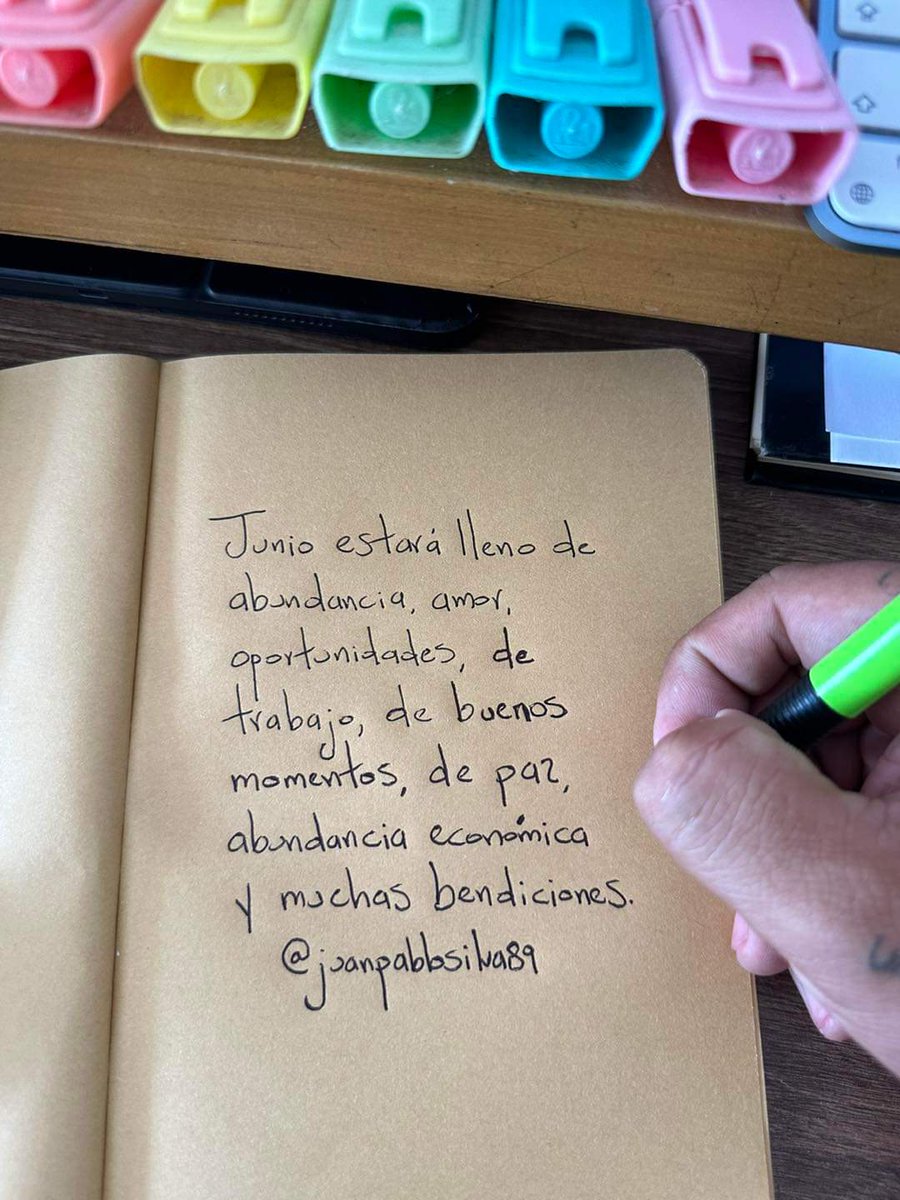 Junio estará lleno de
abundancia, amor,
oportunidades, de
trabajo, de buenos
momentos, de paz,
abundancia económica
y muchas bendiciones.
@juanpablosilva89